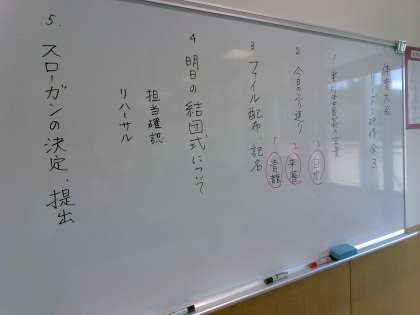 体育大会
研修会3
1
2 今日のふり返り
3 ファイル配布 記名
1 2 3
青龍 朱雀 白虎
4 明日の結団式について
担当確認
リハーサル
5. スローガンの決定、提出